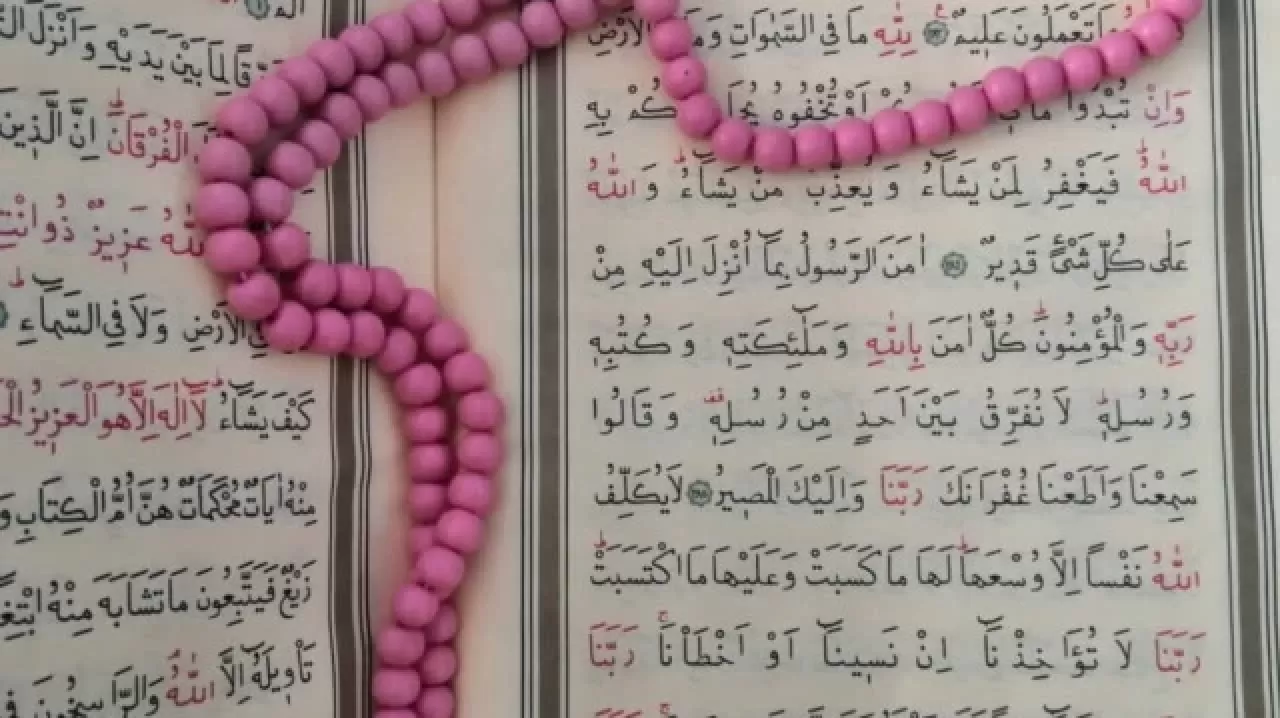 تَعْمَلُونَ عَلِيمٌ ﴿٢٨٣﴾ لِلّٰهِ مَا فِي السَّمٰوَاتِ وَمَا الْاَرْضِ
وَاِنْ تُبْدُوا مَا اَوْ تُخْفُوهُ كُمْ بِهِ
اللّٰهُ فَيَغْفِرُ لِمَنْ يَشَٓاءُ وَ يُعَذِّبُ مَنْ يَشَٓاءُ وَ اللّٰهُ
عَلٰى كُلِّ شَيْءٍ قَدِيرٌ ﴿٢٨٤﴾ اٰمَنَ الرَّسُولُ بِمَٓا اُنْزِلَ اِلَيْهِ مِنْ
رَبِّهِ وَالْمُؤْمِنُونَ كُلٌّ اٰمَنَ بِاللّٰهِ وَ مَلٰٓئِكَتِهِ وَ كُتُبِهِ
وَرُسُلِهِ لَا نُفَرِّقُ بَيْنَ اَحَدٍ مِنْ رُسُلِهِ وَ قَالُوا
سَمِعْنَا وَاَطَعْنَا غُفْرَانَكَ رَبَّنَا وَاِلَيْكَ الْمَصِيرُ ﴿٢٨٥﴾ لَا يُكَلِّفُ
اللّٰهُ نَفْسًا اِلَّا وُسْعَهَا لَهَا مَا كَسَبَتْ وَعَلَيْهَا مَا اكْتَسَبَتْ
رَبَّنَا لَا تُؤَاخِذْنَٓا اِنْ نَسِينَٓا اَوْ اَخْطَأْنَا رَبَّنَا
لِمَا بَيْنَ يَدَيْهِ وَاَنْزَلَ
الْفُرْقَانَ اِنَّ الَّذِينَ
اللّٰهُ عَزِيزٌ ذُو
الْاَرْضِ وَلَا فِي السَّمَٓاءِ
كَيْفَ يَشَٓاءُ لَٓا اِلٰهَ اِلَّا هُوَ الْعَزِيزُ
مِنْهُ اٰيَاتٌ مُحْكَمَاتٌ هُنَّ اُمُّ الْكِتَابِ
زَيْغٌ فَيَتَّبِعُونَ مَا تَشَابَهَ مِنْهُ
تَأْوِيلَهُٓ اِلَّا اللّٰهُ وَالرَّاسِخُونَ